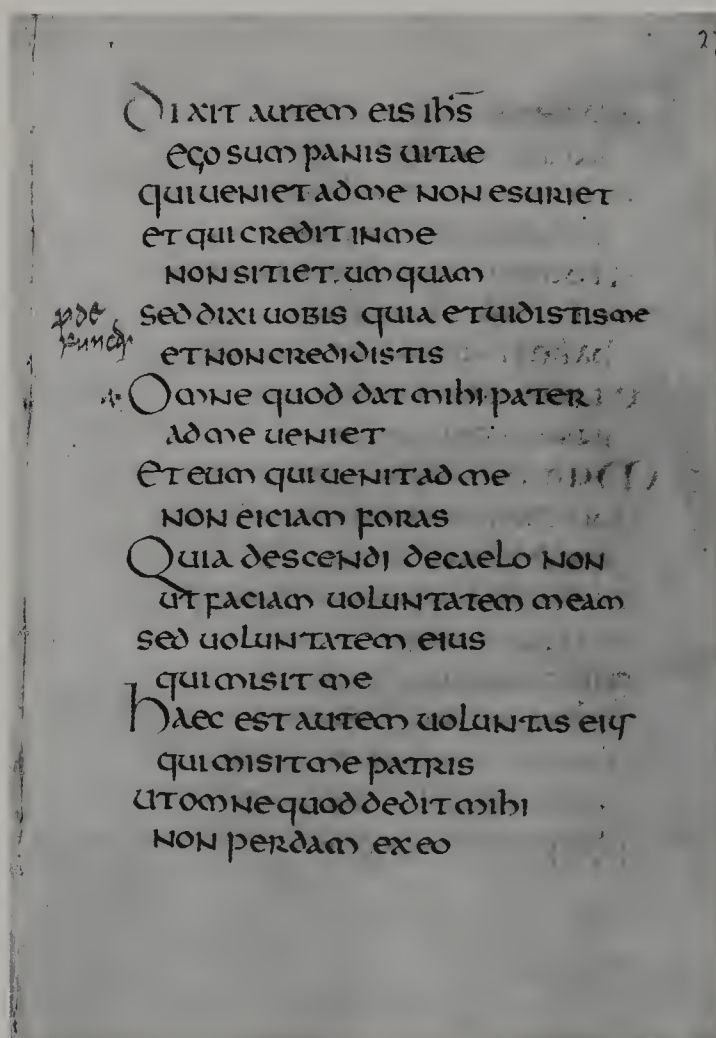 27
Dixit autem eis ihs̄
ego sum panis uitae
qui ueniet ad me non esuriet
et qui credit in me
non sitiet. umquam
sed dixi uobis quia et uidistis me
et non credidistis
Omne quod dat mihi· pater
ad me ueniet
et eum qui uenit ad me .
non eiciam foras
Quia descendi de caelo non
ut faciam uoluntatem meam
sed uoluntatem eius
qui misit me
haec est autem uoluntas eius
qui misit me patris
ut omne quod dedit mihi
non perdam ex eo